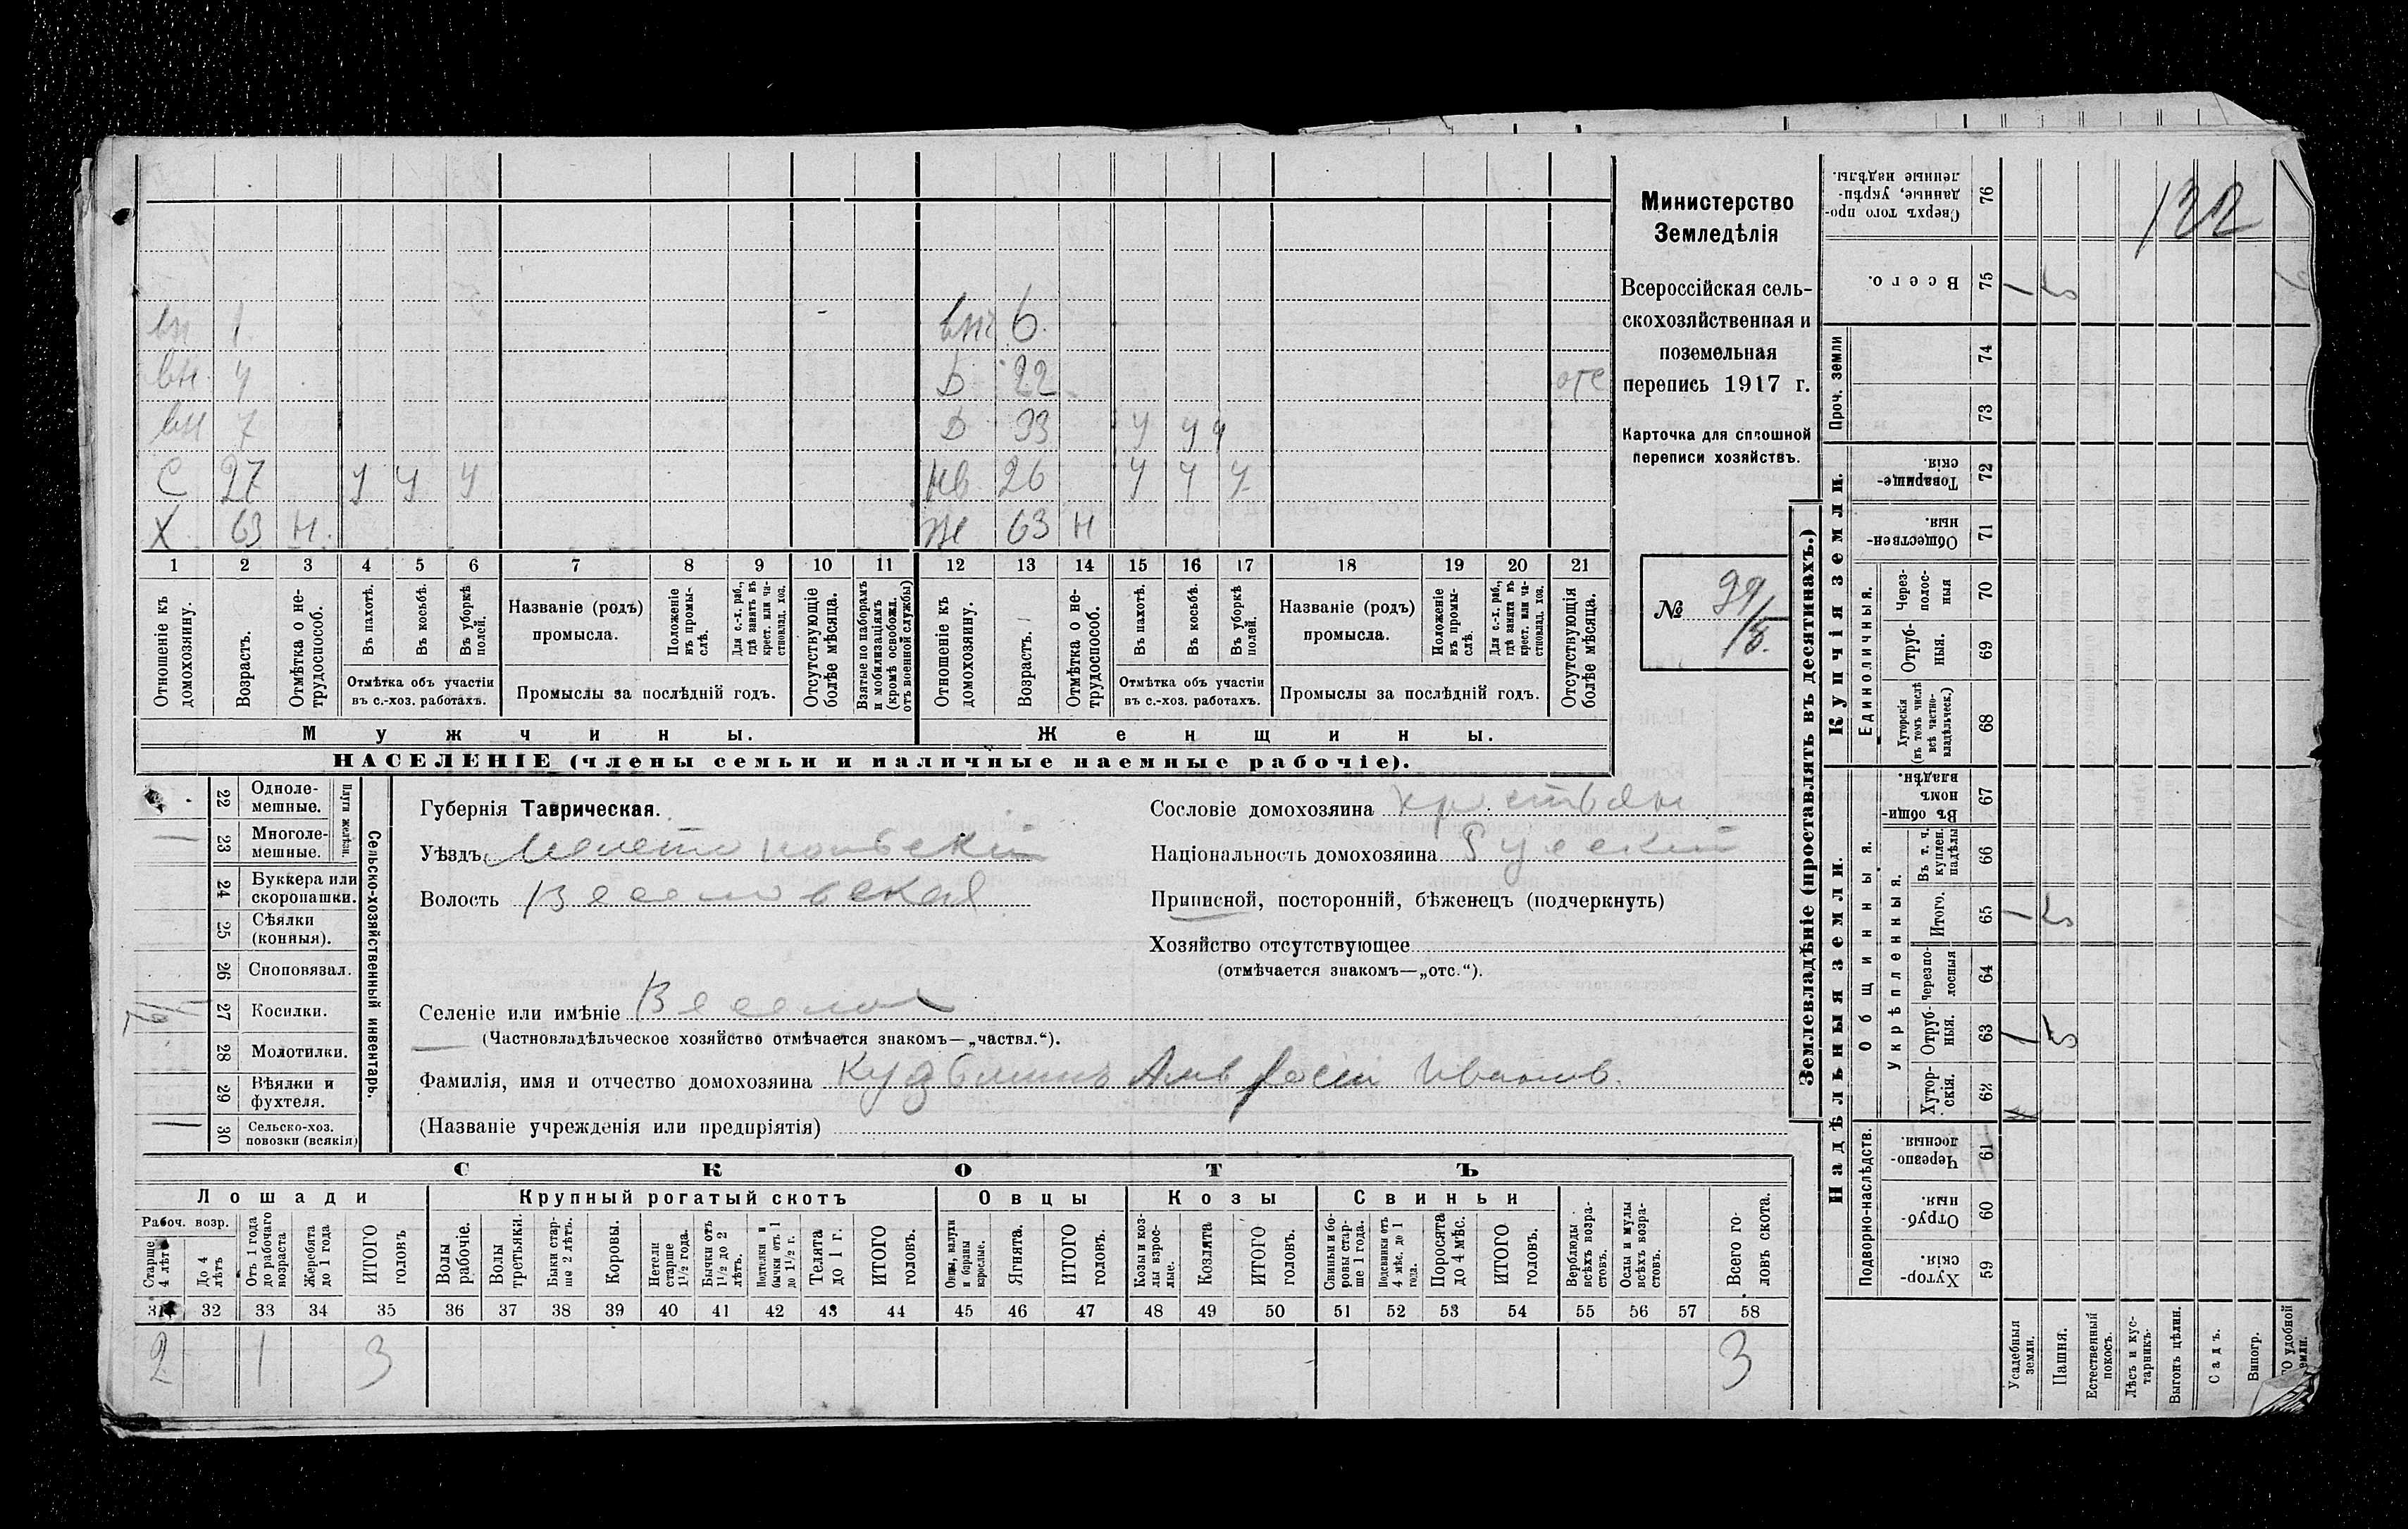 132
Министерство
Земледѣлія
Всероссійская сель-
скохозяйственная и
поземельная
перепись 1917 г.
Карточка для сплошной
переписи хозяйствъ.
№ 99/15.
вн 1 вн 6
вн 4 D 22 отс
вн 7 D 33 у у у
С 27 у у у нв 26 у у у
Х 63 н. Ж 63 н
1 2 3 4 5 6 7 8 9 10 11 12 13 14 15 16 17 18 19 20 21
Отношеніе къ домохозяину.
Возрастъ.
Отмѣтка о не-трудоспособ.
Въ пахотѣ.
Въ косьбѣ.
Въ уборкѣ полей.
Отмѣтка объ участіи въ с.-хоз. работахъ.
Названіе (родъ) промысла.
Положеніе въ промы-слѣ.
Для с.-х. раб., гдѣ занятъ въ крест. или ча-стновлад. хоз.
Промыслы за послѣдній годъ.
Отсутствующіе болѣе мѣсяца.
Взятые по наборамъ и мобилизаціямъ (кромѣ освобожд. отъ военной службы)
Отношеніе къ домохозяину.
Возрастъ.
Отмѣтка о не-трудоспособ.
Въ пахотѣ.
Въ косьбѣ.
Въ уборкѣ полей.
Отмѣтка объ участіи въ с.-хоз. работахъ.
Названіе (родъ) промысла.
Положеніе въ промы-слѣ.
Для с.-х. раб., гдѣ занята въ крест. или ча-стновлад. хоз.
Промыслы за послѣдній годъ.
Отсутствующія болѣе мѣсяца.
Мужчины. Женщины.
НАСЕЛЕНІЕ (члены семьи и наличные наемные рабочіе).
Сельско-хозяйственный инвентарь.
Плуги желѣзн.
22 Одноле-мешные.
23 Многоле-мешные.
24 Буккера или скоропашки.
25 Сѣялки (конныя).
26 Сноповязал.
27 Косилки.
28 Молотилки.
29 Вѣялки и фухтеля.
30 Сельско-хоз. повозки (всякія)
Губернія Таврическая.
Уѣздъ Мелитопольскій
Волость Веселовская
Селеніе или имѣніе Веселое
(Частновладѣльческое хозяйство отмѣчается знакомъ—„частвл.“).
Фамилія, имя и отчество домохозяина Амвросій Иванов.
(Названіе учрежденія или предпріятія)
Сословіе домохозяина крестьян
Національность домохозяина Русскій
Приписной, посторонній, бѣженецъ (подчеркнуть)
Хозяйство отсутствующее
(отмѣчается знакомъ—„отс.“).
СКОТЪ
Лошади Крупный рогатый скотъ Овцы Козы Свиньи
Рабоч. возр.
Старше 4 лѣтъ
До 4 лѣтъ
Отъ 1 года до рабочаго возраста
Жеребята до 1 года
ИТОГО головъ
Волы рабочіе.
Волы третьяки.
Быки стар-ше 2 лѣтъ.
Коровы.
Нетели старше 1½ года.
Бычки отъ 1½ до 2 лѣтъ.
Подтелки и бычки отъ 1 до 1½ г.
Телята до 1 г.
ИТОГО головъ.
Овцы, валухи и бараны взрослые.
Ягнята.
ИТОГО головъ.
Козы и коз-лы взрос-лые.
Козлята
ИТОГО головъ.
Свиньи и бо-ровы стар-ше 1 года.
Подсвинки отъ 4 мѣс. до 1 года.
Поросята до 4 мѣс.
ИТОГО головъ.
Верблюды всѣхъ возра-стовъ.
Ослы и мулы всѣхъ возра-стовъ.
Всего го-ловъ скота.
31 32 33 34 35 36 37 38 39 40 41 42 43 44 45 46 47 48 49 50 51 52 53 54 55 56 57 58
2 1 3 3
Землевладѣніе (проставлять въ десятинахъ.)
Надѣльныя земли. Купчія земли. Проч. земли
Подворно-наслѣдств.
Общинныя.
Укрѣпленныя.
Единоличныя.
59 Хутор-скія.
60 Отруб-ныя.
61 Черезпо-лосныя.
62 Хутор-скія.
63 Отруб-ныя. 1 5
64 Черезпо-лосныя
65 Итого. 1 5
66 Въ т. ч. куплен. надѣлы
67 Въ общи-номъ владѣн.
68 Хуторскія (въ томъ числѣ всѣ частно-владѣльческ.)
69 Отруб-ныя.
70 Через-полос-ныя
71 Обществен-ныя.
72 Товарище-скія.
73
74
75 Всего. 1 5
76 Сверхъ того про-данные, укрѣп-ленные надѣлы.
Усадебныя земли.
Пашня.
Естественный покосъ.
Лѣсъ и кус-тарникъ.
Выгонъ цѣлин.
Садъ.
Виногр.
удобной земли.